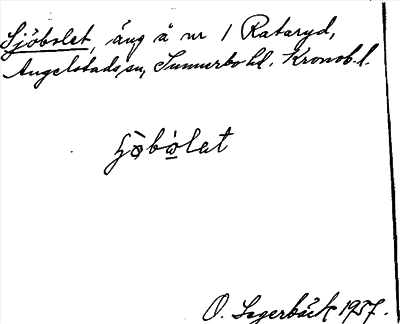 Sjöbolet, äng å nr 1 Rataryd,
Angelstads sn, Sunnerbo hd. Kronob. l.
O. Lagerbäck 1937.